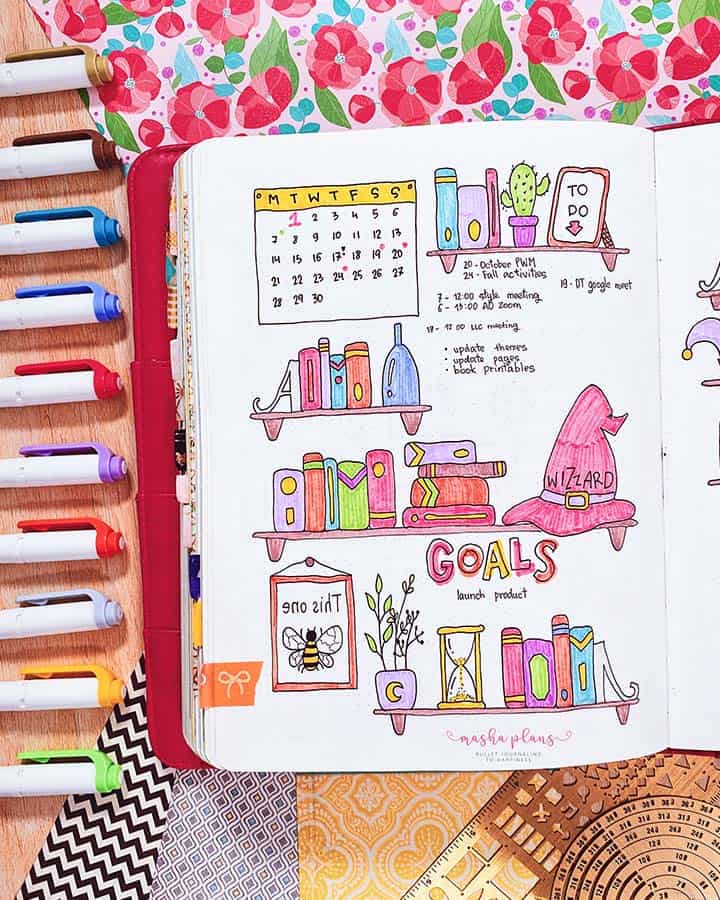 M T W T F S S
1 2 3 4 5 6
7 8 9 10 11 12 13
14 15 16 17 18 19 20
21 22 23 24 25 26 27
28 29 30
TO
DO
20 - October PWM
24 - Fall activities
19 - DT google meet
7 - 12:00 style meeting
6 - 13:00 AD zoom
12 00 LLC meeting
• update themes
• update pages
• book printables
A
WIZZARD
GOALS
launch product
This one
masha plans
BULLET JOURNALING
TO HAPPINESS